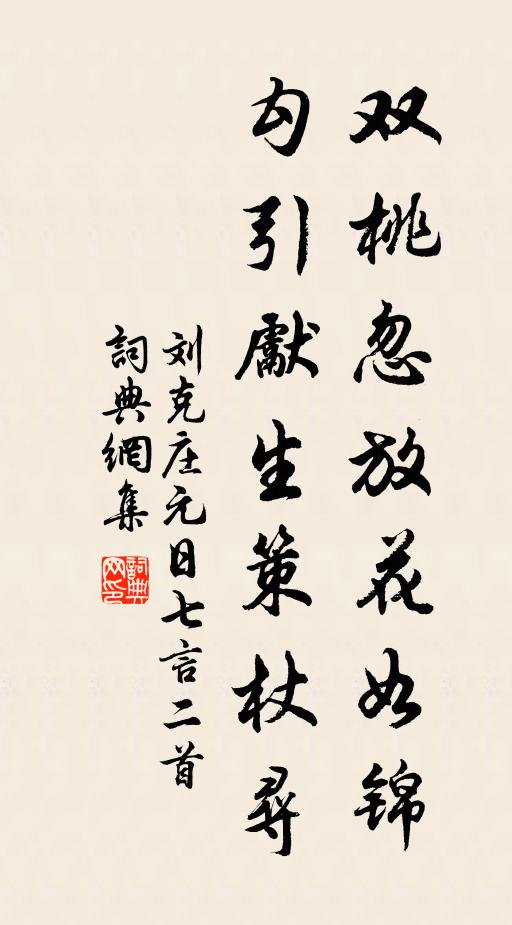 双桃忽放花如锦
勾引獻生策杖尋
刘克庄元日七言二首
詞典網集
詞典网印